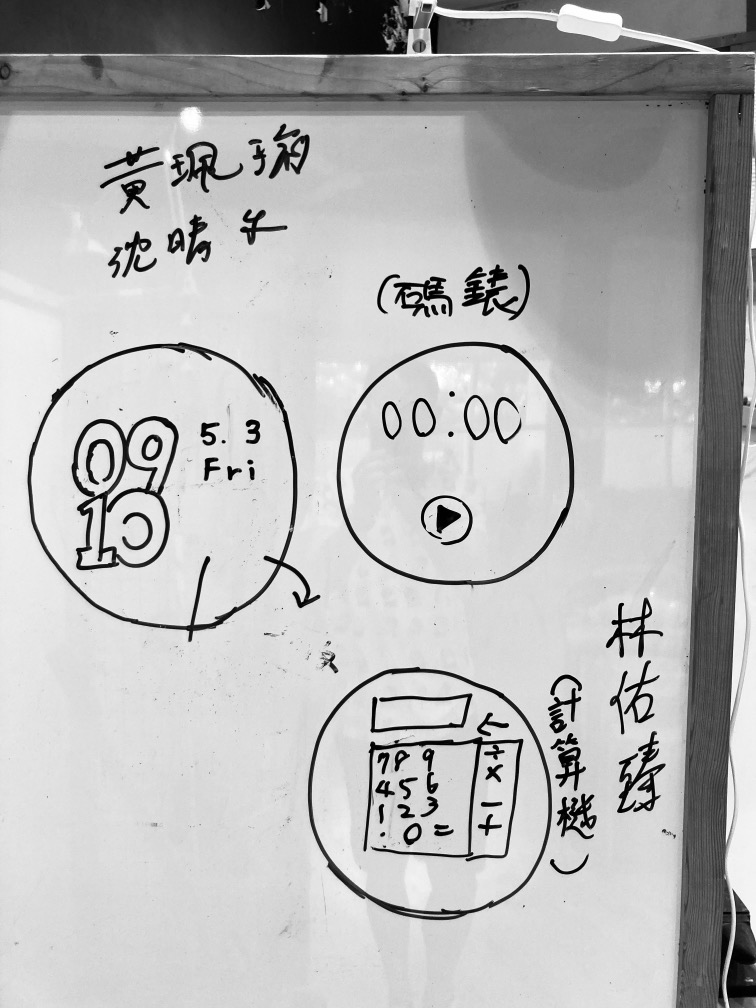 黃珮瑜
沈晴
(碼錶)
09
10
5. 3
Fri
00:00
林佑臻
(計算機)
←
7 8 9 ÷
4 5 6 ×
1 2 3 −
. 0 = +